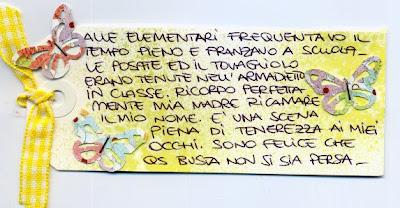 ALLE ELEMENTARI FREQUENTAVO IL
TEMPO PIENO E PRANZAVO A SCUOLA_
LE POSATE ED IL TOVAGLIOLO
ERANO TENUTE NELL'ARMADIETTO
IN CLASSE. RICORDO PERFETTA
MENTE MIA MADRE RICAMARE
IL MIO NOME. E' UNA SCENA
PIENA DI TENEREZZA AI MIEI
OCCHI. SONO FELICE CHE
QS BUSTA NON SI SIA PERSA_